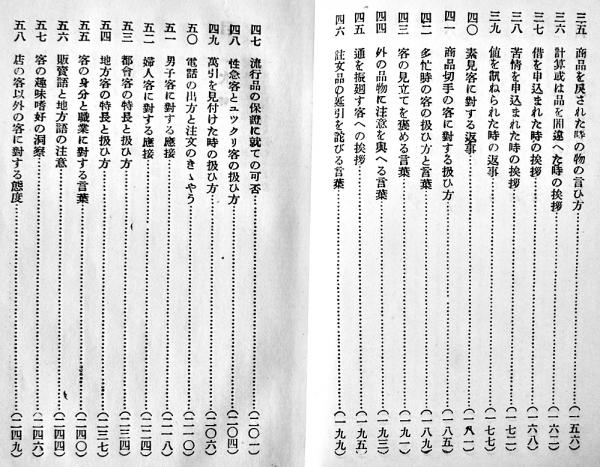 三五 商品を戻された時の物の言ひ方……(一五六)
三六 計算或は品を間違へた時の挨拶……(一六二)
三七 借を申込まれた時の挨拶……(一六八)
三八 苦情を申込まれた時の挨拶……(一七二)
三九 値を訊ねられた時の返事……(一七七)
四〇 素見客に對する返事……(一八一)
四一 商品切手の客に對する扱ひ方……(一八五)
四二 多忙時の客の扱ひ方と言葉……(一八九)
四三 客の見立てを褒める言葉……(一九一)
四四 外の品物に注意を與へる言葉……(一九三)
四五 通を振廻す客への挨拶……(一九五)
四六 註文品の延引を詫びる言葉……(一九九)
四七 流行品の保證に就ての可否……(二〇一)
四八 性急客とユックリ客の扱ひ方……(二〇四)
四九 萬引を見付けた時の扱ひ方……(二〇六)
五〇 電話の出方と注文のきゝやう……(二一〇)
五一 男子客に對する應接……(二一八)
五二 婦人客に對する應接……(二二四)
五三 都會客の特長と扱ひ方……(二三四)
五四 地方客の特長と扱ひ方……(二三七)
五五 客の身分と職業に對する言葉……(二四〇)
五六 販賣語と地方語の注意……(二四四)
五七 客の趣味嗜好の洞察……(二四六)
五八 店の客以外の客に對する態度……(二四九)